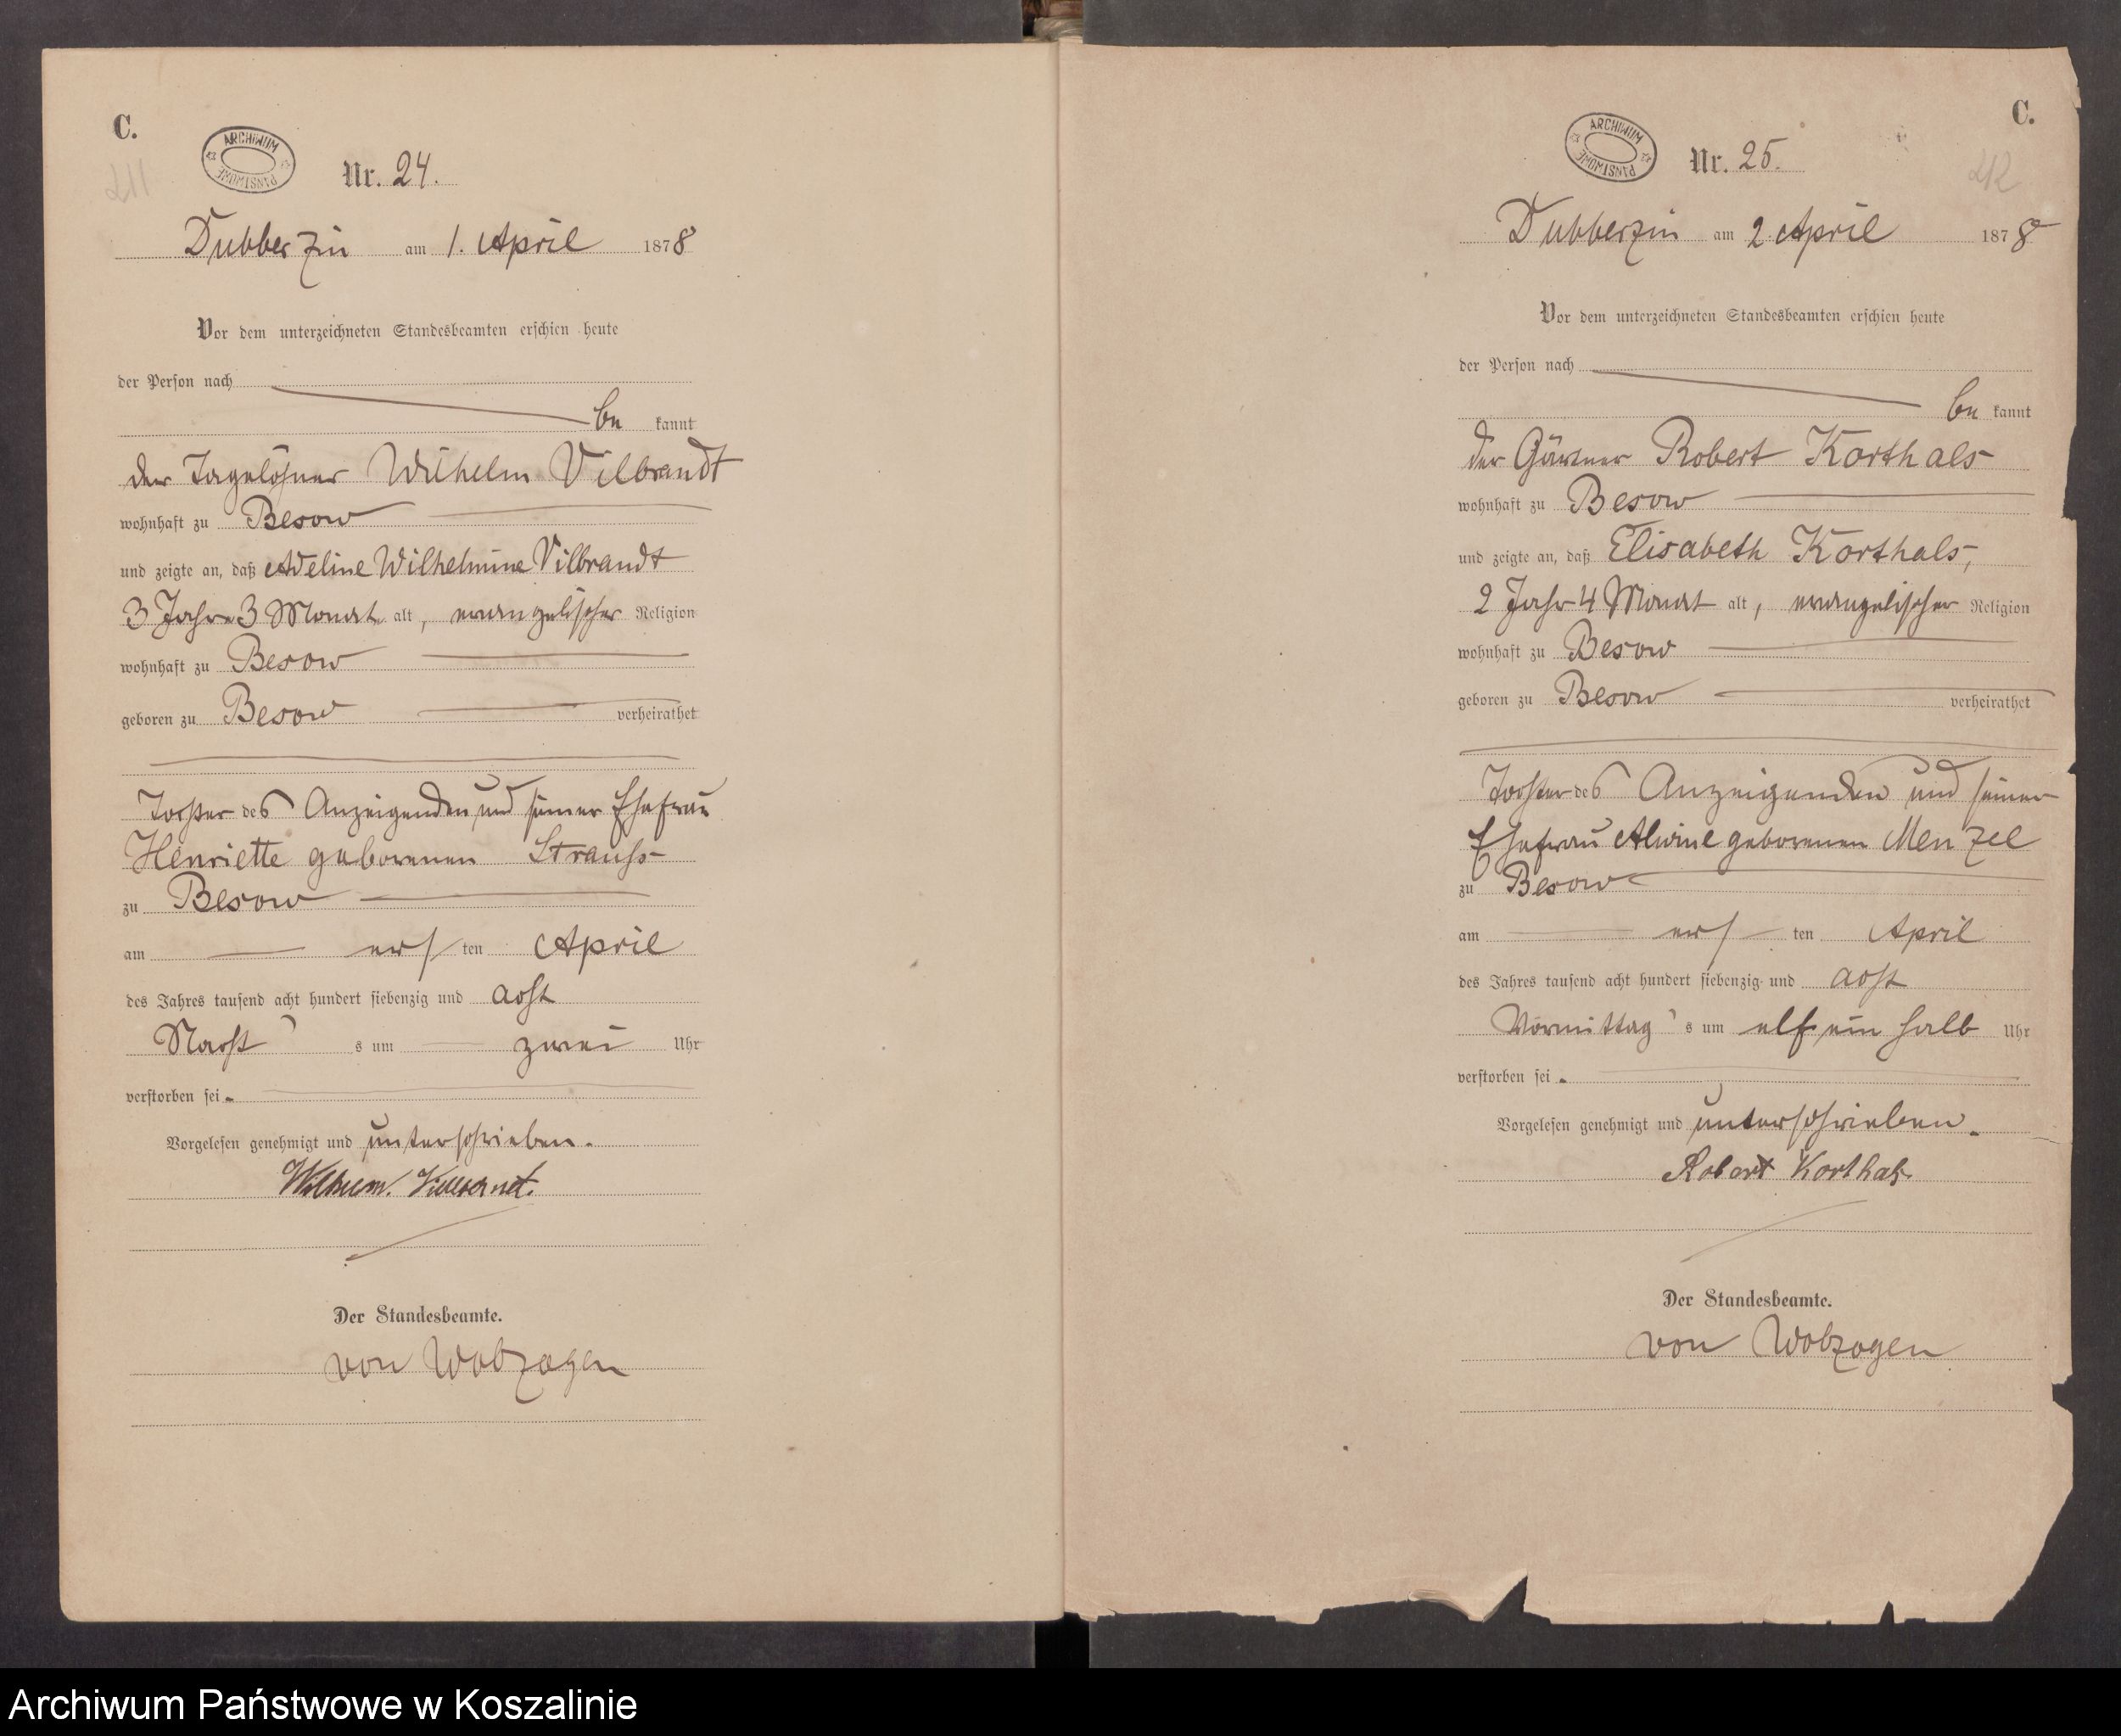 C.
ARCHIWUM PAŃSTWOWE
211
Nr. 24.
Dubberzin am 1. April 1878
Vor dem unterzeichneten Standesbeamten erschien heute
der Person nach
be kannt
der Tagelöhner Wilhelm Vilbrandt
wohnhaft zu Besow
und zeigte an, daß Adeline Wilhelmine Vilbrandt
3 Jahre 3 Monat alt, evangelischer Religion
wohnhaft zu Besow
geboren zu Besow verheirathet
Tochter des Anzeigenden und seiner Ehefrau
Henriette geborenen Strauss
zu Besow
am ers ten April
des Jahres tausend acht hundert siebenzig und acht
Nacht s um zwei Uhr
verstorben sei.
Vorgelesen genehmigt und unterschrieben.
Wilhelm.
Der Standesbeamte.
von Wobzogen
C.
ARCHIWUM PAŃSTWOWE
212
Nr. 25.
Dubberzin am 2 April 1878
Vor dem unterzeichneten Standesbeamten erschien heute
der Person nach
be kannt
der Gärtner Robert Korthals
wohnhaft zu Besow
und zeigte an, daß Elisabeth Korthals,
2 Jahr 4 Monat alt, evangelischer Religion
wohnhaft zu Besow
geboren zu Besow verheirathet
Tochter des Anzeigenden und seiner
Ehefrau Alwine geborenen Menzel
zu Besow
am ers ten April
des Jahres tausend acht hundert siebenzig und acht
Vormittag s um elf ein halb Uhr
verstorben sei.
Vorgelesen genehmigt und unterschrieben.
Robert Korthals.
Der Standesbeamte.
von Wobzogen
Archiwum Państwowe w Koszalinie